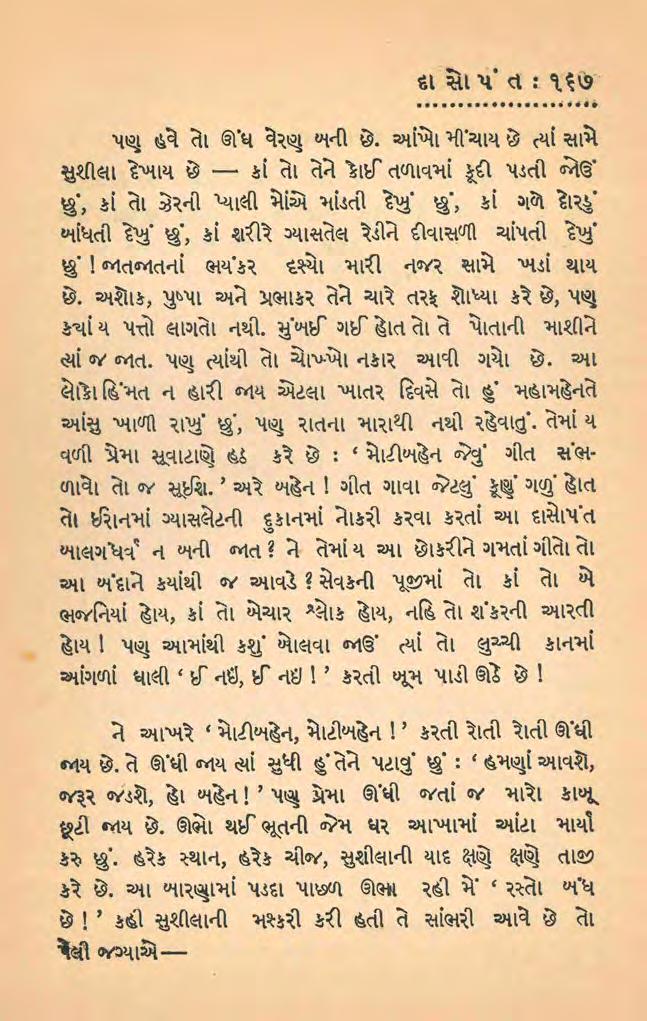 દાસોપંત : ૧૬૭
પણ હવે તો ઊંધ વેરણ બની છે. આંખો મીંચાય છે ત્યાં સામે
સુશીલા દેખાય છે — કાં તો તેને કોઈ તળાવમાં કૂદી પડતી જોઉં
છું, કાં તો ઝેરની પ્યાલી મોંએ માંડતી દેખું છું, કાં ગળે દોરડું
બાંધતી દેખું છું, કાં શરીરે ગ્યાસતેલ રેડીને દીવાસળી ચાંપતી દેખું
છું ! જાતજાતનાં ભયંકર દશ્યો મારી નજર સામે ખડાં થાય
છે. અશોક, પુષ્પા અને પ્રભાકર તેને ચારે તરફ શોધ્યા કરે છે, પણ
કયાં ય પત્તો લાગતો નથી. મુંબઈ ગઈ હોત તો તે પોતાની માશીને
ત્યાં જ જાત. પણ ત્યાંથી તો ચોખ્ખો નકાર આવી ગયો છે. આ
લોકો હિંમત ન હારી જાય એટલા ખાતર દિવસે તો હું મહામહેનતે
આંસુ ખાળી રાખું છું, પણ રાતના મારાથી નથી રહેવાતું. તેમાં ય
વળી પ્રેમા સૂવાટાણે હઠ કરે છે : ‘ મોટીબહેન જેવું ગીત સંભ-
ળાવો તો જ સૂઈશ. ’ અરે બહેન ! ગીત ગાવા જેટલું કૂણું ગળું હોત
તો ઈરાનમાં ગ્યાસલેટની દુકાનમાં નોકરી કરવા કરતાં આ દાસોપંત
બાલગંધર્વ ન બની જાત ? ને તેમાં ય આ છોકરીને ગમતાં ગીતો તો
આ બંદાને કયાંથી જ આવડે ? સેવકની પૂજીમાં તો કાં તો બે
ભજનિયાં હોય, કાં તો બેચાર શ્લોક હોય, નહિ તો શંકરની આરતી
હોય ! પણ આમાંથી કશું બોલવા જાઉં ત્યાં તો લુચ્ચી કાનમાં
આંગળાં ઘાલી ‘ ઈ નઇં, ઈ નઇં ! ’ કરતી બૂમ પાડી ઊઠે છે !
ને આખરે ‘ મોટીબહેન, મોટીબહેન ! ’ કરતી રોતી રોતી ઊંઘી
જાય છે. તે ઊંઘી જાય ત્યાં સુધી હું તેને પટાવું છું : ‘ હમણાં આવશે,
જરૂર જડશે, હો બહેન ! ’ પણ પ્રેમા ઊંઘી જતાં જ મારો કાબૂ
છૂટી જાય છે. ઊભો થઈ ભૂતની જેમ ઘર આખામાં આંટા માર્યા
કરું છું. હરેક સ્થાન, હરેક ચીજ, સુશીલાની યાદ ક્ષણે ક્ષણે તાજી
કરે છે. આ બારણામાં પડદા પાછળ ઊભા રહી મેં ‘ રસ્તો બંધ
છે ! ’ કહી સુશીલાની મશ્કરી કરી હતી તે સાંભરી આવે છે તો
પેલી જગ્યાએ—